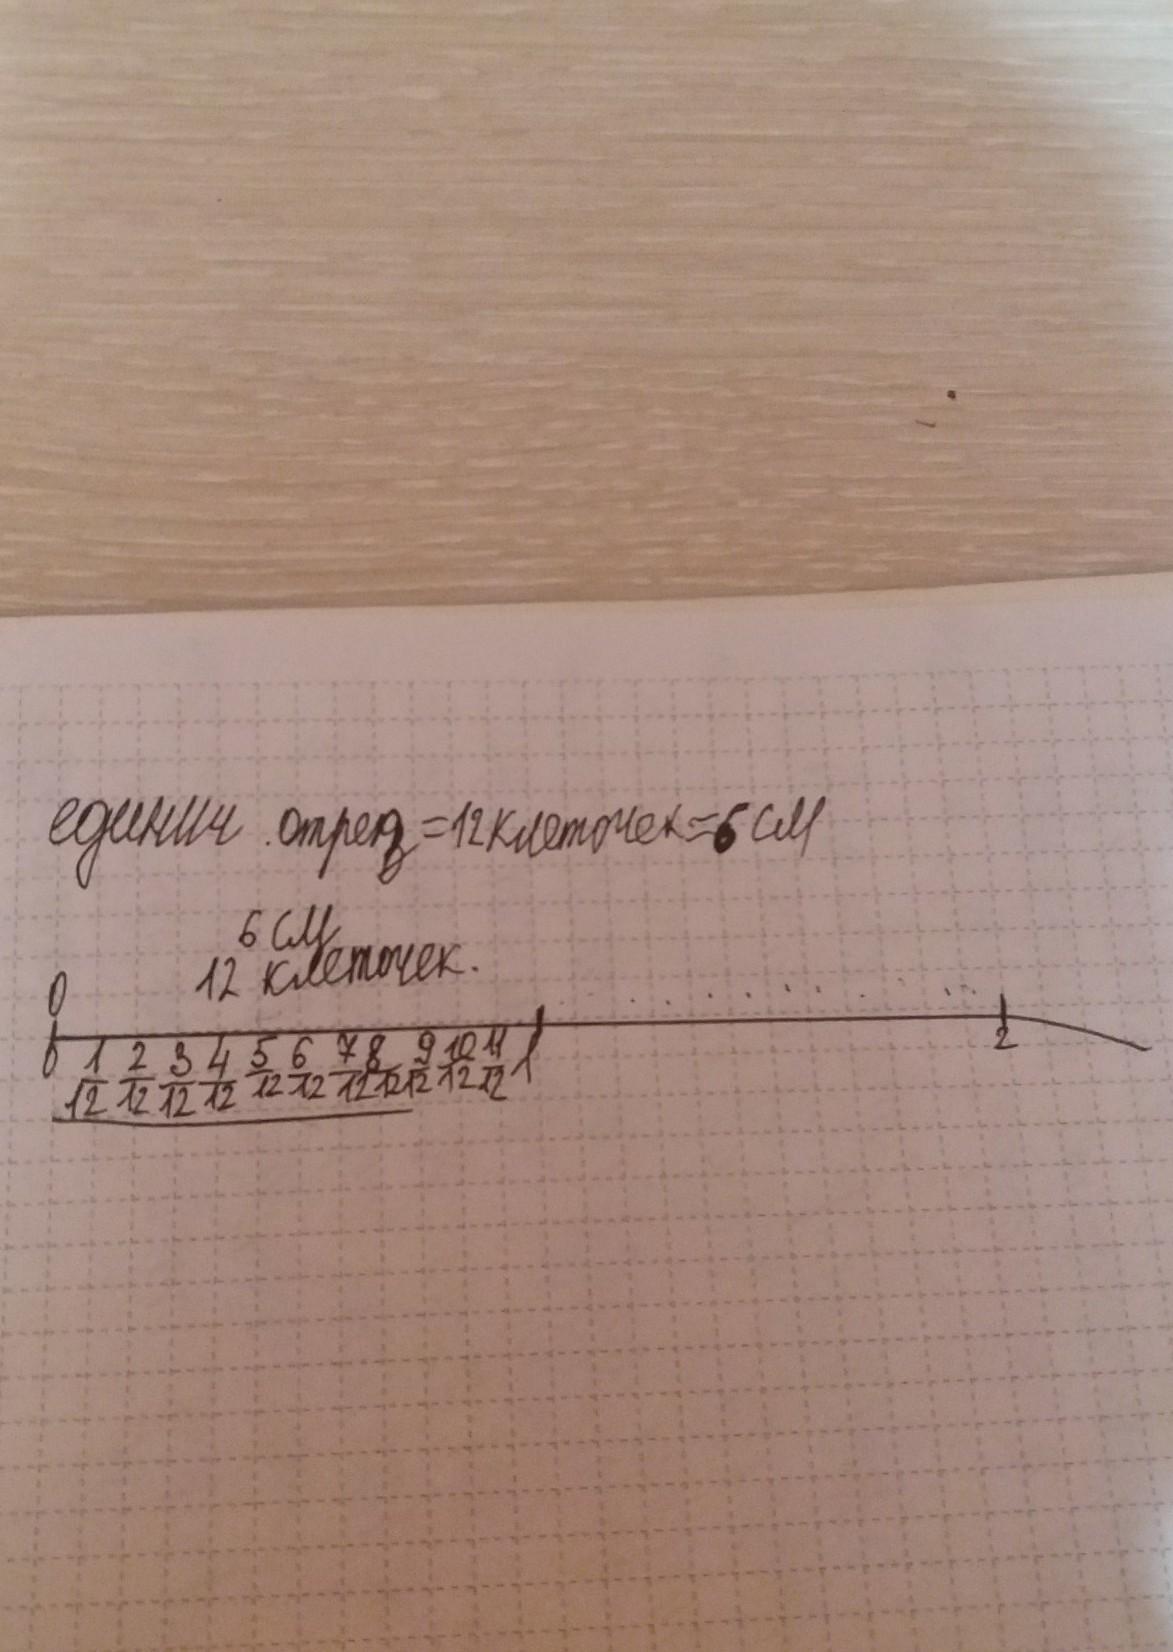 единич. отрез = 12 клеточек = 6 см
6 см
12 клеточек.
0
0 1/12 2/12 3/12 4/12 5/12 6/12 7/12 8/12 9/12 10/12 11/12 1 2